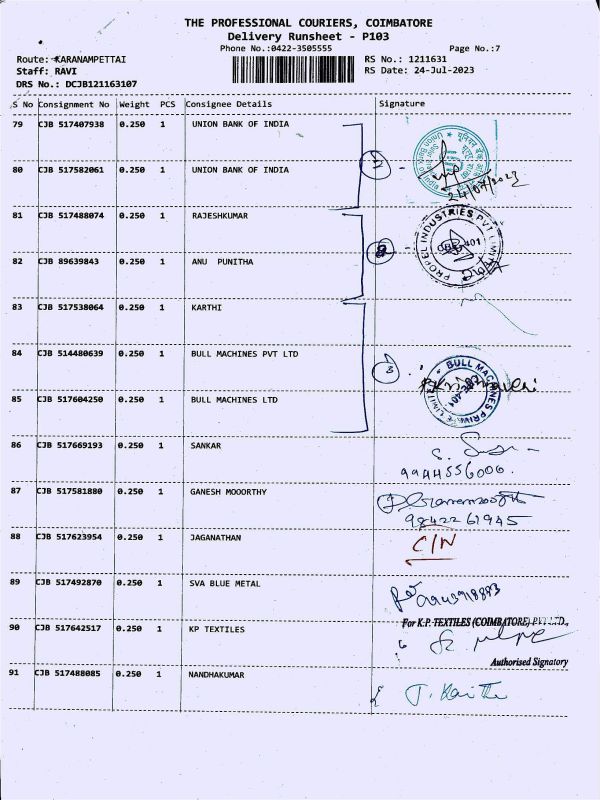 THE PROFESSIONAL COURIERS, COIMBATORE
Delivery Runsheet - P103
Phone No.:0422-3505555 Page No.:7
Route: KARANAMPETTAI RS No.: 1211631
Staff: RAVI RS Date: 24-Jul-2023
DRS No.: DCJB121163107
S No Consignment No Weight PCS Consignee Details Signature
79 CJB 517407938 0.250 1 UNION BANK OF INDIA
80 CJB 517582061 0.250 1 UNION BANK OF INDIA
24/07/2023
81 CJB 517488074 0.250 1 RAJESHKUMAR
PROPEL INDUSTRIES PVT LIMITED
82 CJB 89639843 0.250 1 ANU PUNITHA
83 CJB 517538064 0.250 1 KARTHI
84 CJB 514480639 0.250 1 BULL MACHINES PVT LTD
3
BULL MACHINES PRIVATE LIMITED
85 CJB 517604250 0.250 1 BULL MACHINES LTD
86 CJB 517669193 0.250 1 SANKAR
9944556006.
87 CJB 517581880 0.250 1 GANESH MOOORTHY
9842261945
88 CJB 517623954 0.250 1 JAGANATHAN C/N
89 CJB 517492870 0.250 1 SVA BLUE METAL
For K.P. TEXTILES (COIMBATORE) PVT. LTD.,
90 CJB 517642517 0.250 1 KP TEXTILES
Authorised Signatory
91 CJB 517488085 0.250 1 NANDHAKUMAR